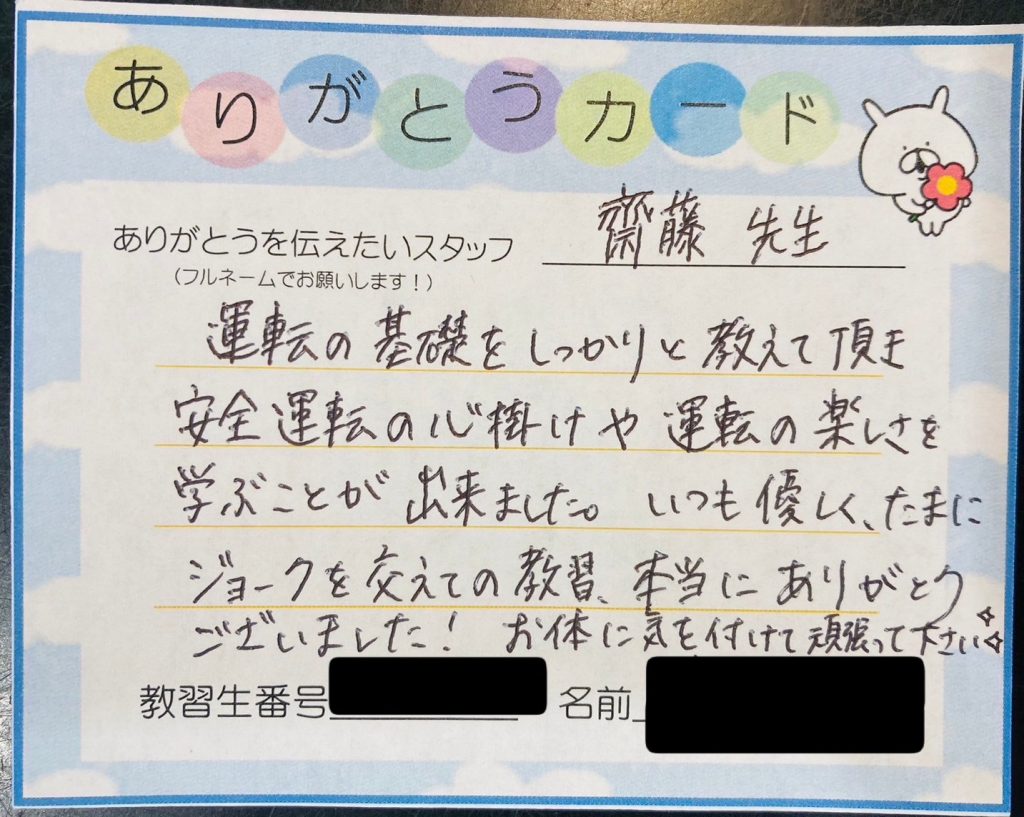 ありがとうカード
ありがとうを伝えたいスタッフ 齋藤 先生
(フルネームでお願いします!)
運転の基礎をしっかりと教えて頂き
安全運転の心掛けや運転の楽しさを
学ぶことが出来ました。いつも優しく、たまに
ジョークを交えての教習、本当にありがとう
ございました! お体に気を付けて頑張って下さい
教習生番号 名前